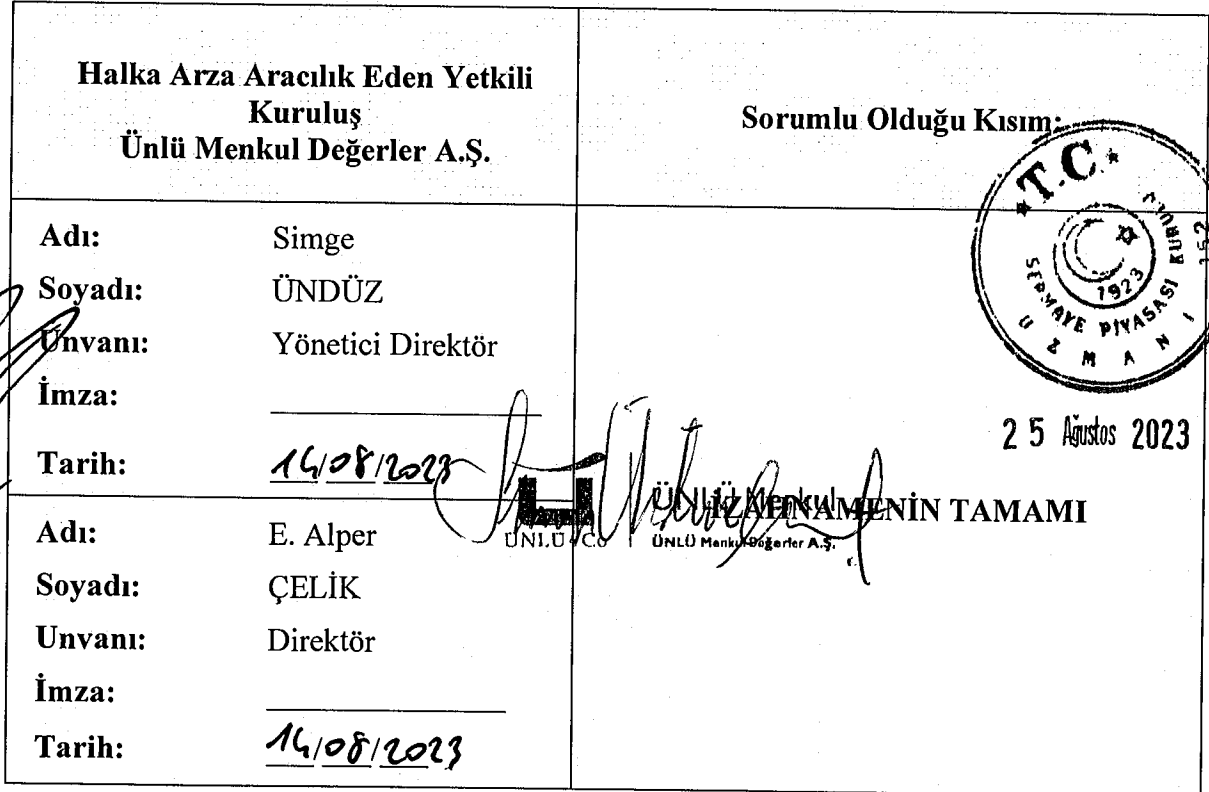 Halka Arza Aracılık Eden Yetkili
Kuruluş
Ünlü Menkul Değerler A.Ş.
Sorumlu Olduğu Kısım:
Adı: Simge
Soyadı: ÜNDÜZ
Unvanı: Yönetici Direktör
İmza:
Tarih: 14/08/2023
Adı: E. Alper
Soyadı: ÇELİK
Unvanı: Direktör
İmza:
Tarih: 14/08/2023
T.C.
SERMAYE PİYASASI KURULU
1923
UZMANI
152
25 Ağustos 2023
İZAHNAMENİN TAMAMI
ÜNLÜ & Co
ÜNLÜ Menkul
ÜNLÜ Menkul Değerler A.Ş.